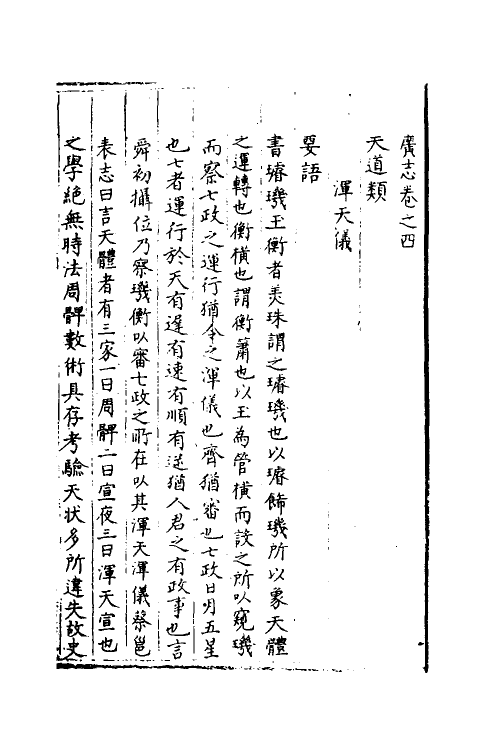 廣志卷之四
天道類
渾天儀
要語
書璿璣玉衡者美珠謂之璿璣也以璿飾璣所以象天體
之運轉也衡橫也謂衡簫也以玉為管橫而設之所以窺璣
而察七政之運行猶今之渾儀也齊猶審也七政日月五星
也七者運行於天有遲有速有順有逆猶人君之有政事也言
舜初攝位乃察璣衡以審七政之所在以其渾天渾儀蔡邕
表志曰言天體者有三家一曰周髀二曰宣夜三曰渾天宣也
之學絕無時法周髀數術具存考驗天状多所違失故史